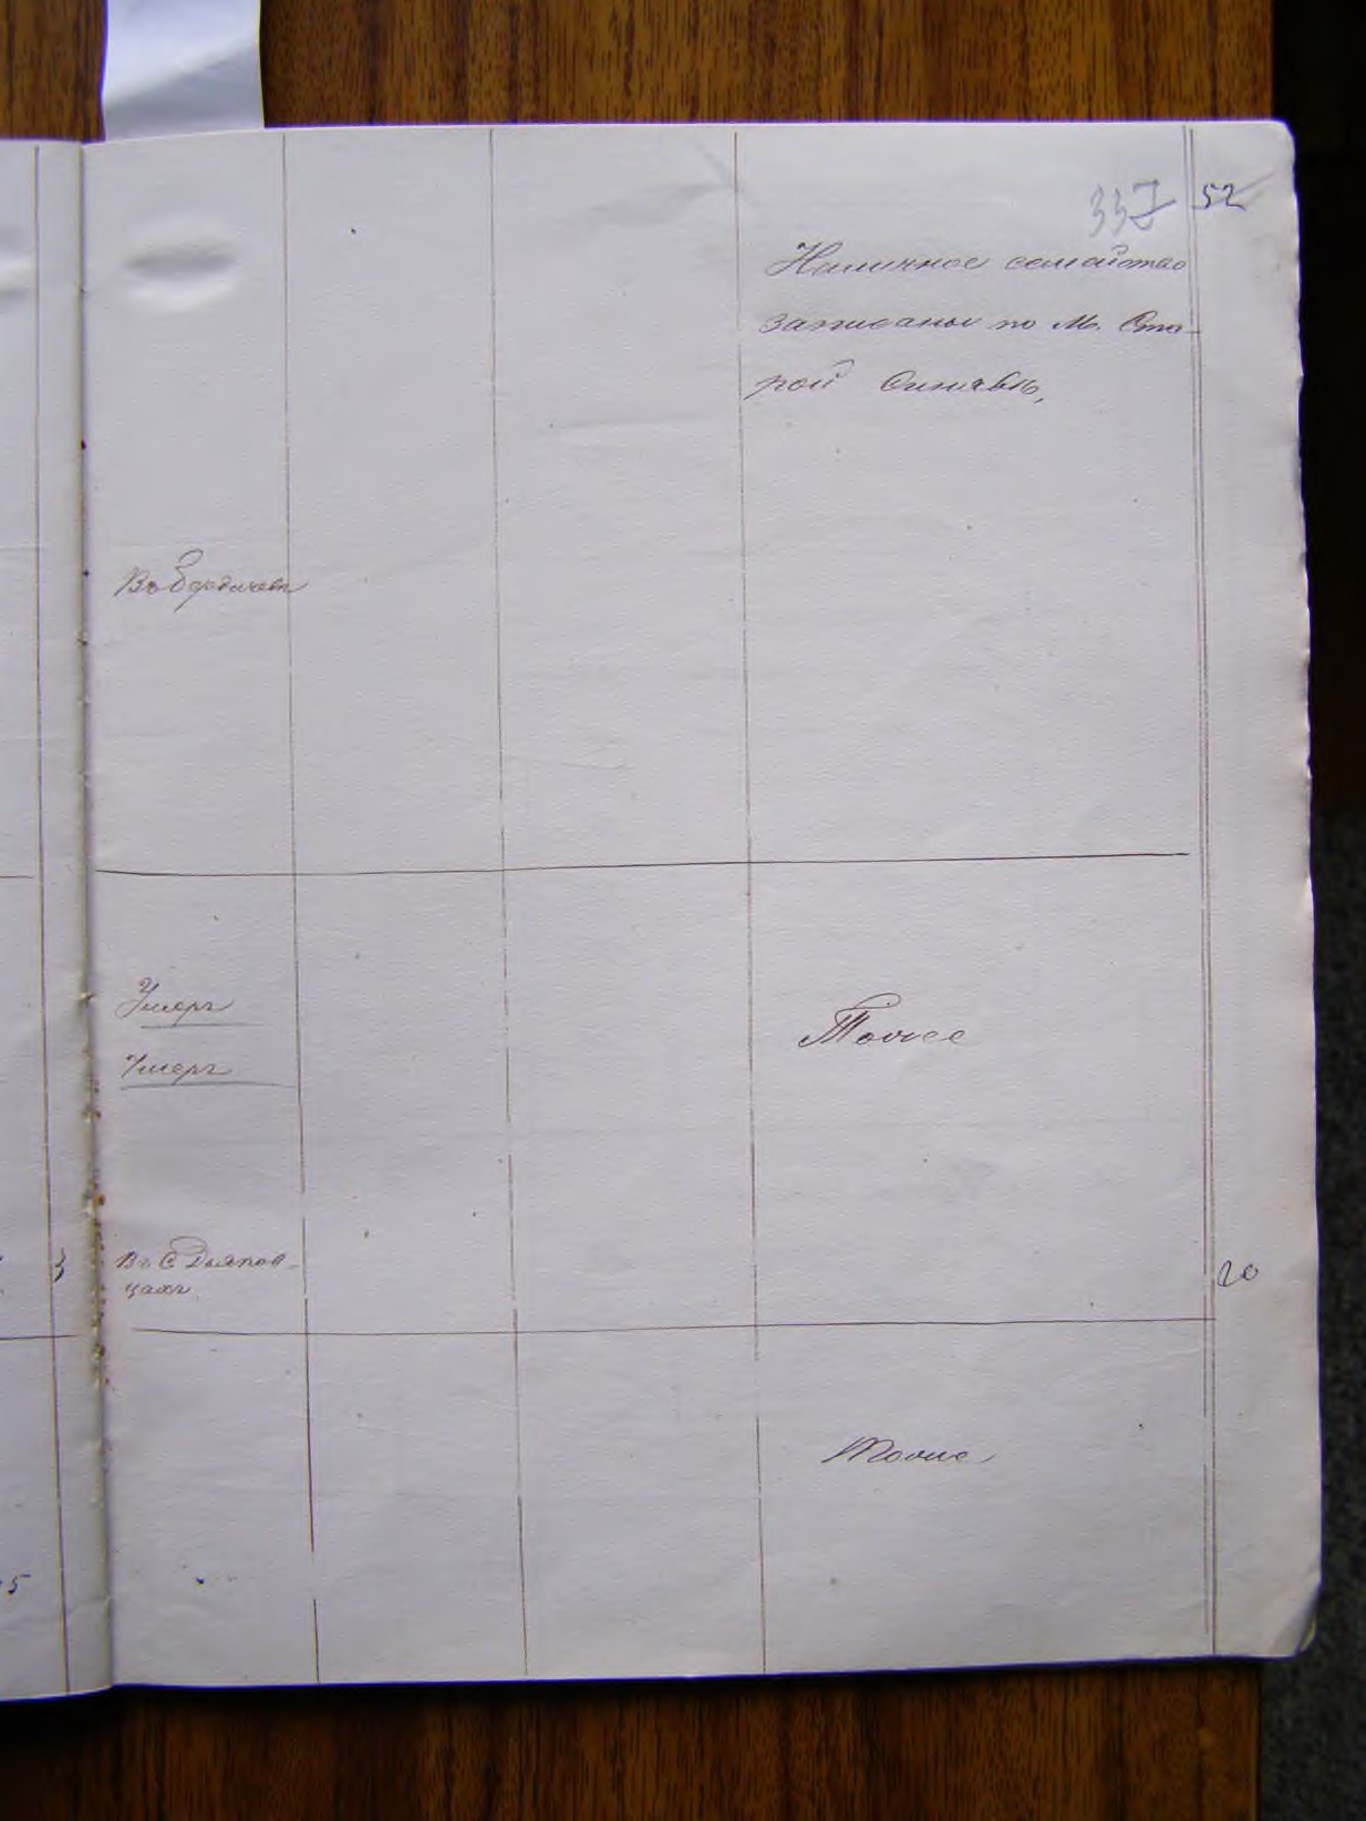 337 52
Наличное семейство
записаны по М. Ста-
рой Синявѣ,
Въ Бердичевѣ
Умеръ
Тоже
Умеръ
3 Въ С Дьяков-
цахъ
20
Тоже
5